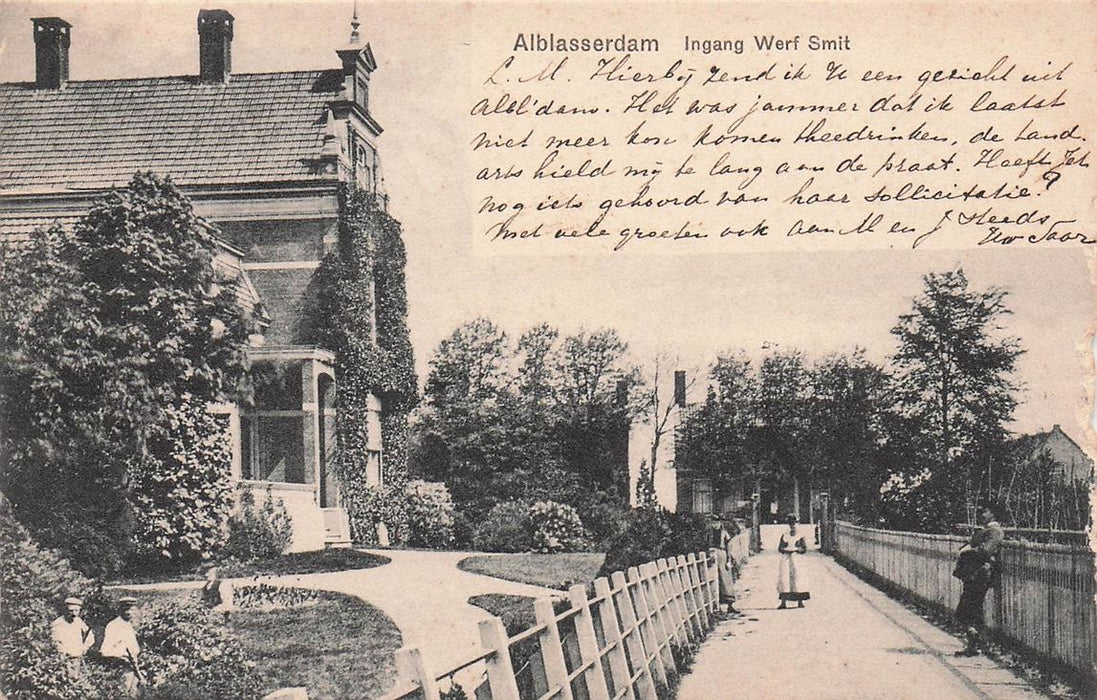 Alblasserdam Ingang Werf Smit
L. M. Hierbij zend ik U een gezicht uit
Albl'dam. Het was jammer dat ik laatst
niet meer kon komen theedrinken, de tand-
arts hield mij te lang aan de praat. Heeft Jet
nog iets gehoord van haar sollicitatie?
Met vele groeten ook aan M en J Steeds
Uw Saar